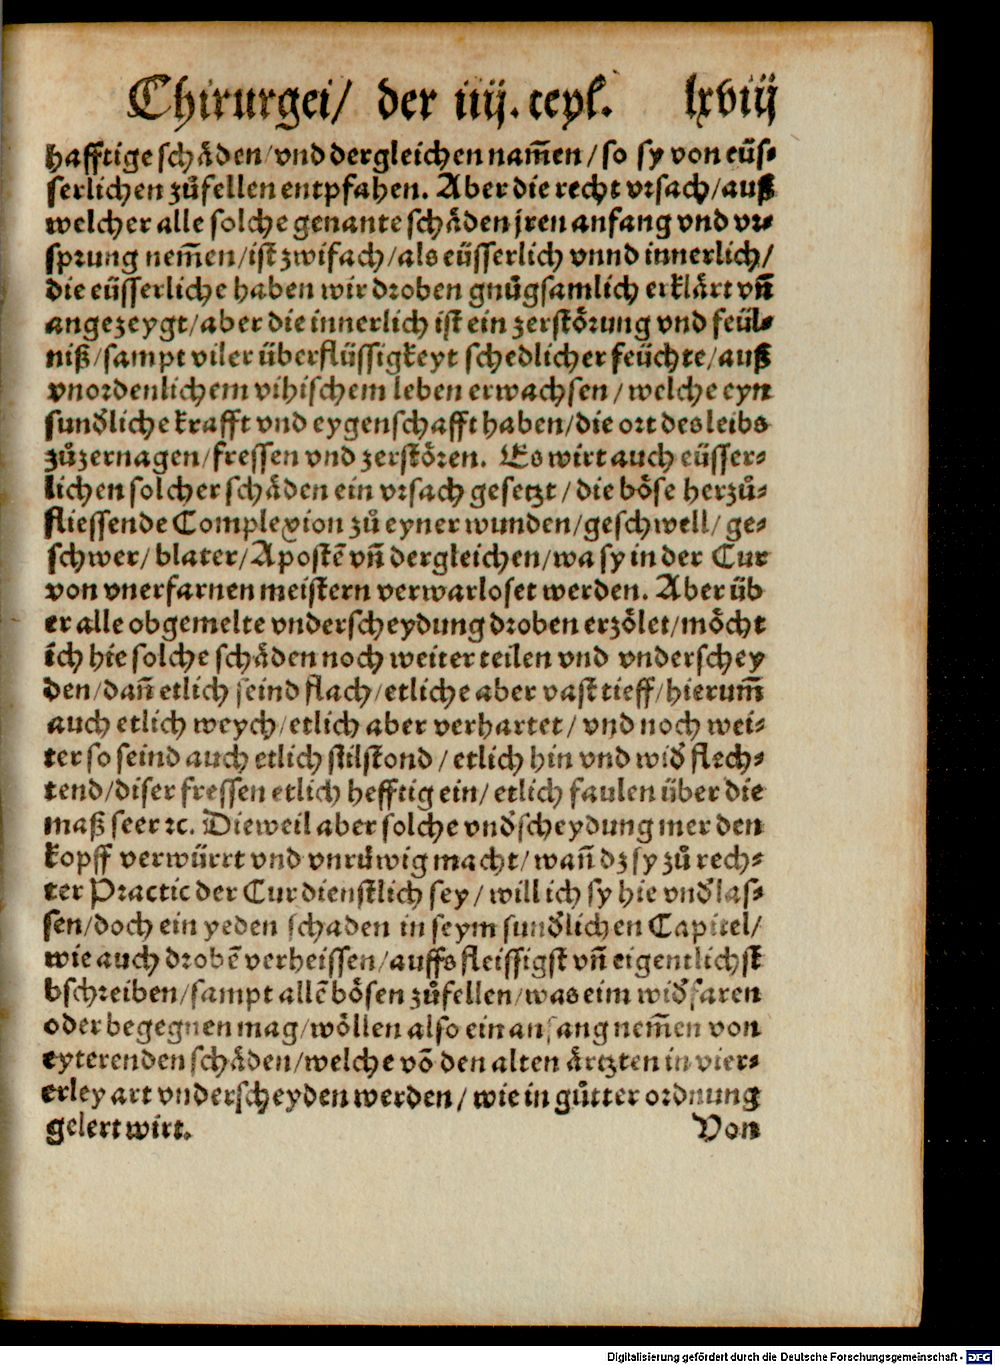 Chirurgei/ der iiij. teyl. lxviij
hafftige schåden/vnd dergleichen nam̃en/so sy von eüs-
serlichen zůfellen entpfahen. Aber die recht vrsach/auß
welcher alle solche genante schåden jren anfang vnd vr-
sprung nem̃en/ist zwifach/als eüsserlich vnnd innerlich/
die eüsserliche haben wir droben gnůgsamlich erklårt vñ
angezeygt/aber die innerlich ist ein zerstőrung vnd feül-
niß/sampt viler überflüssigkeyt schedlicher feüchte/auß
vnordenlichem vihischem leben erwachsen/welche eyn
sunđliche krafft vnd eygenschafft haben/die ort des leibs
zůzernagen/fressen vnd zerstőren. Es wirt auch eüsser-
lichen solcher schåden ein vrsach gesetzt/die bőse herzů-
fliessende Complexion zů eyner wunden/geschwell/ge-
schwer/blater/Apostē vñ dergleichen/wa sy in der Cur
von vnerfarnen meistern verwarloset werden. Aber üb
er alle obgemelte vnderscheydung droben erzőlet/mőcht
ich hie solche schåden noch weiter teilen vnd vnderschey
den/dañ etlich seind flach/etliche aber vast tieff/hierum̃
auch etlich weych/etlich aber verhartet/vnd noch wei-
ter so seind auch etlich stilstond/etlich hin vnd wiđ flech-
tend/diser fressen etlich hefftig ein/etlich faulen über die
maß seer ꝛc. Dieweil aber solche vnđscheydung mer den
kopff verwürrt vnd vnrůwig macht/wañ dz sy zů rech-
ter Practic der Cur dienstlich sey/will ich sy hie vnđlas-
sen/doch ein yeden schaden in seym sunđlichen Capitel/
wie auch drobē verheissen/auffs fleissigst vñ eigentlichst
bschreiben/sampt allē bősen zůfellen/was eim wiđfaren
oder begegnen mag/wőllen also ein anfang nem̃en von
eyterenden schåden/welche võ den alten årtzten in vier-
erley art vnderscheyden werden/wie in gůtter ordnung
gelert wirt. Von
Digitalisierung gefördert durch die Deutsche Forschungsgemeinschaft - DFG